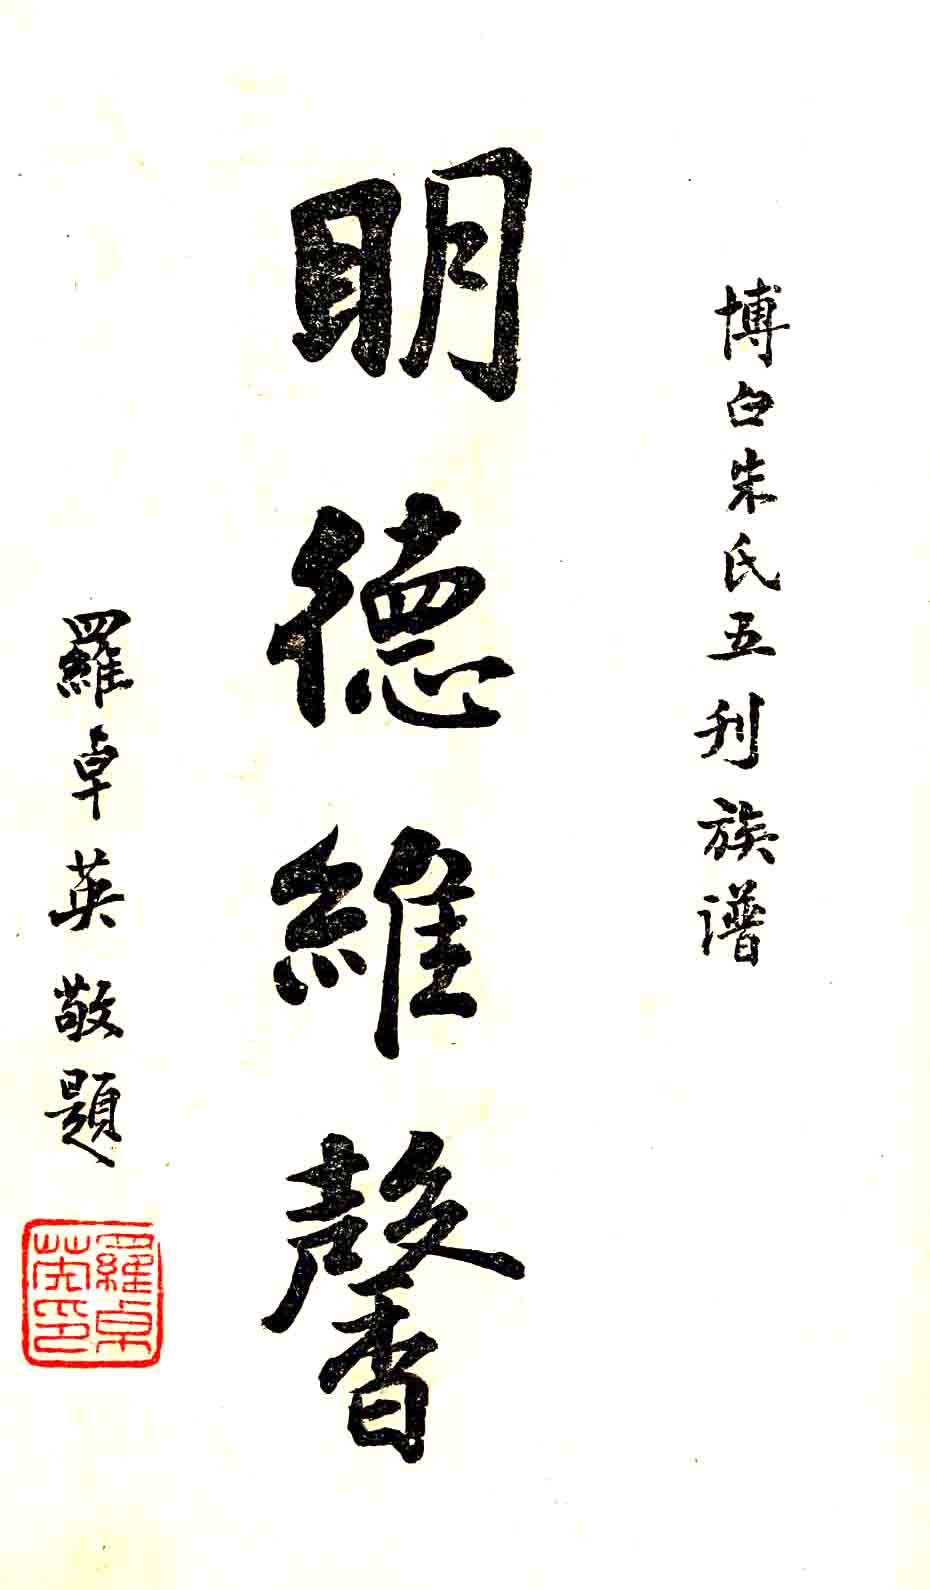 博白朱氏五刊族譜
明德維馨
羅卓英敬題
羅卓
英印